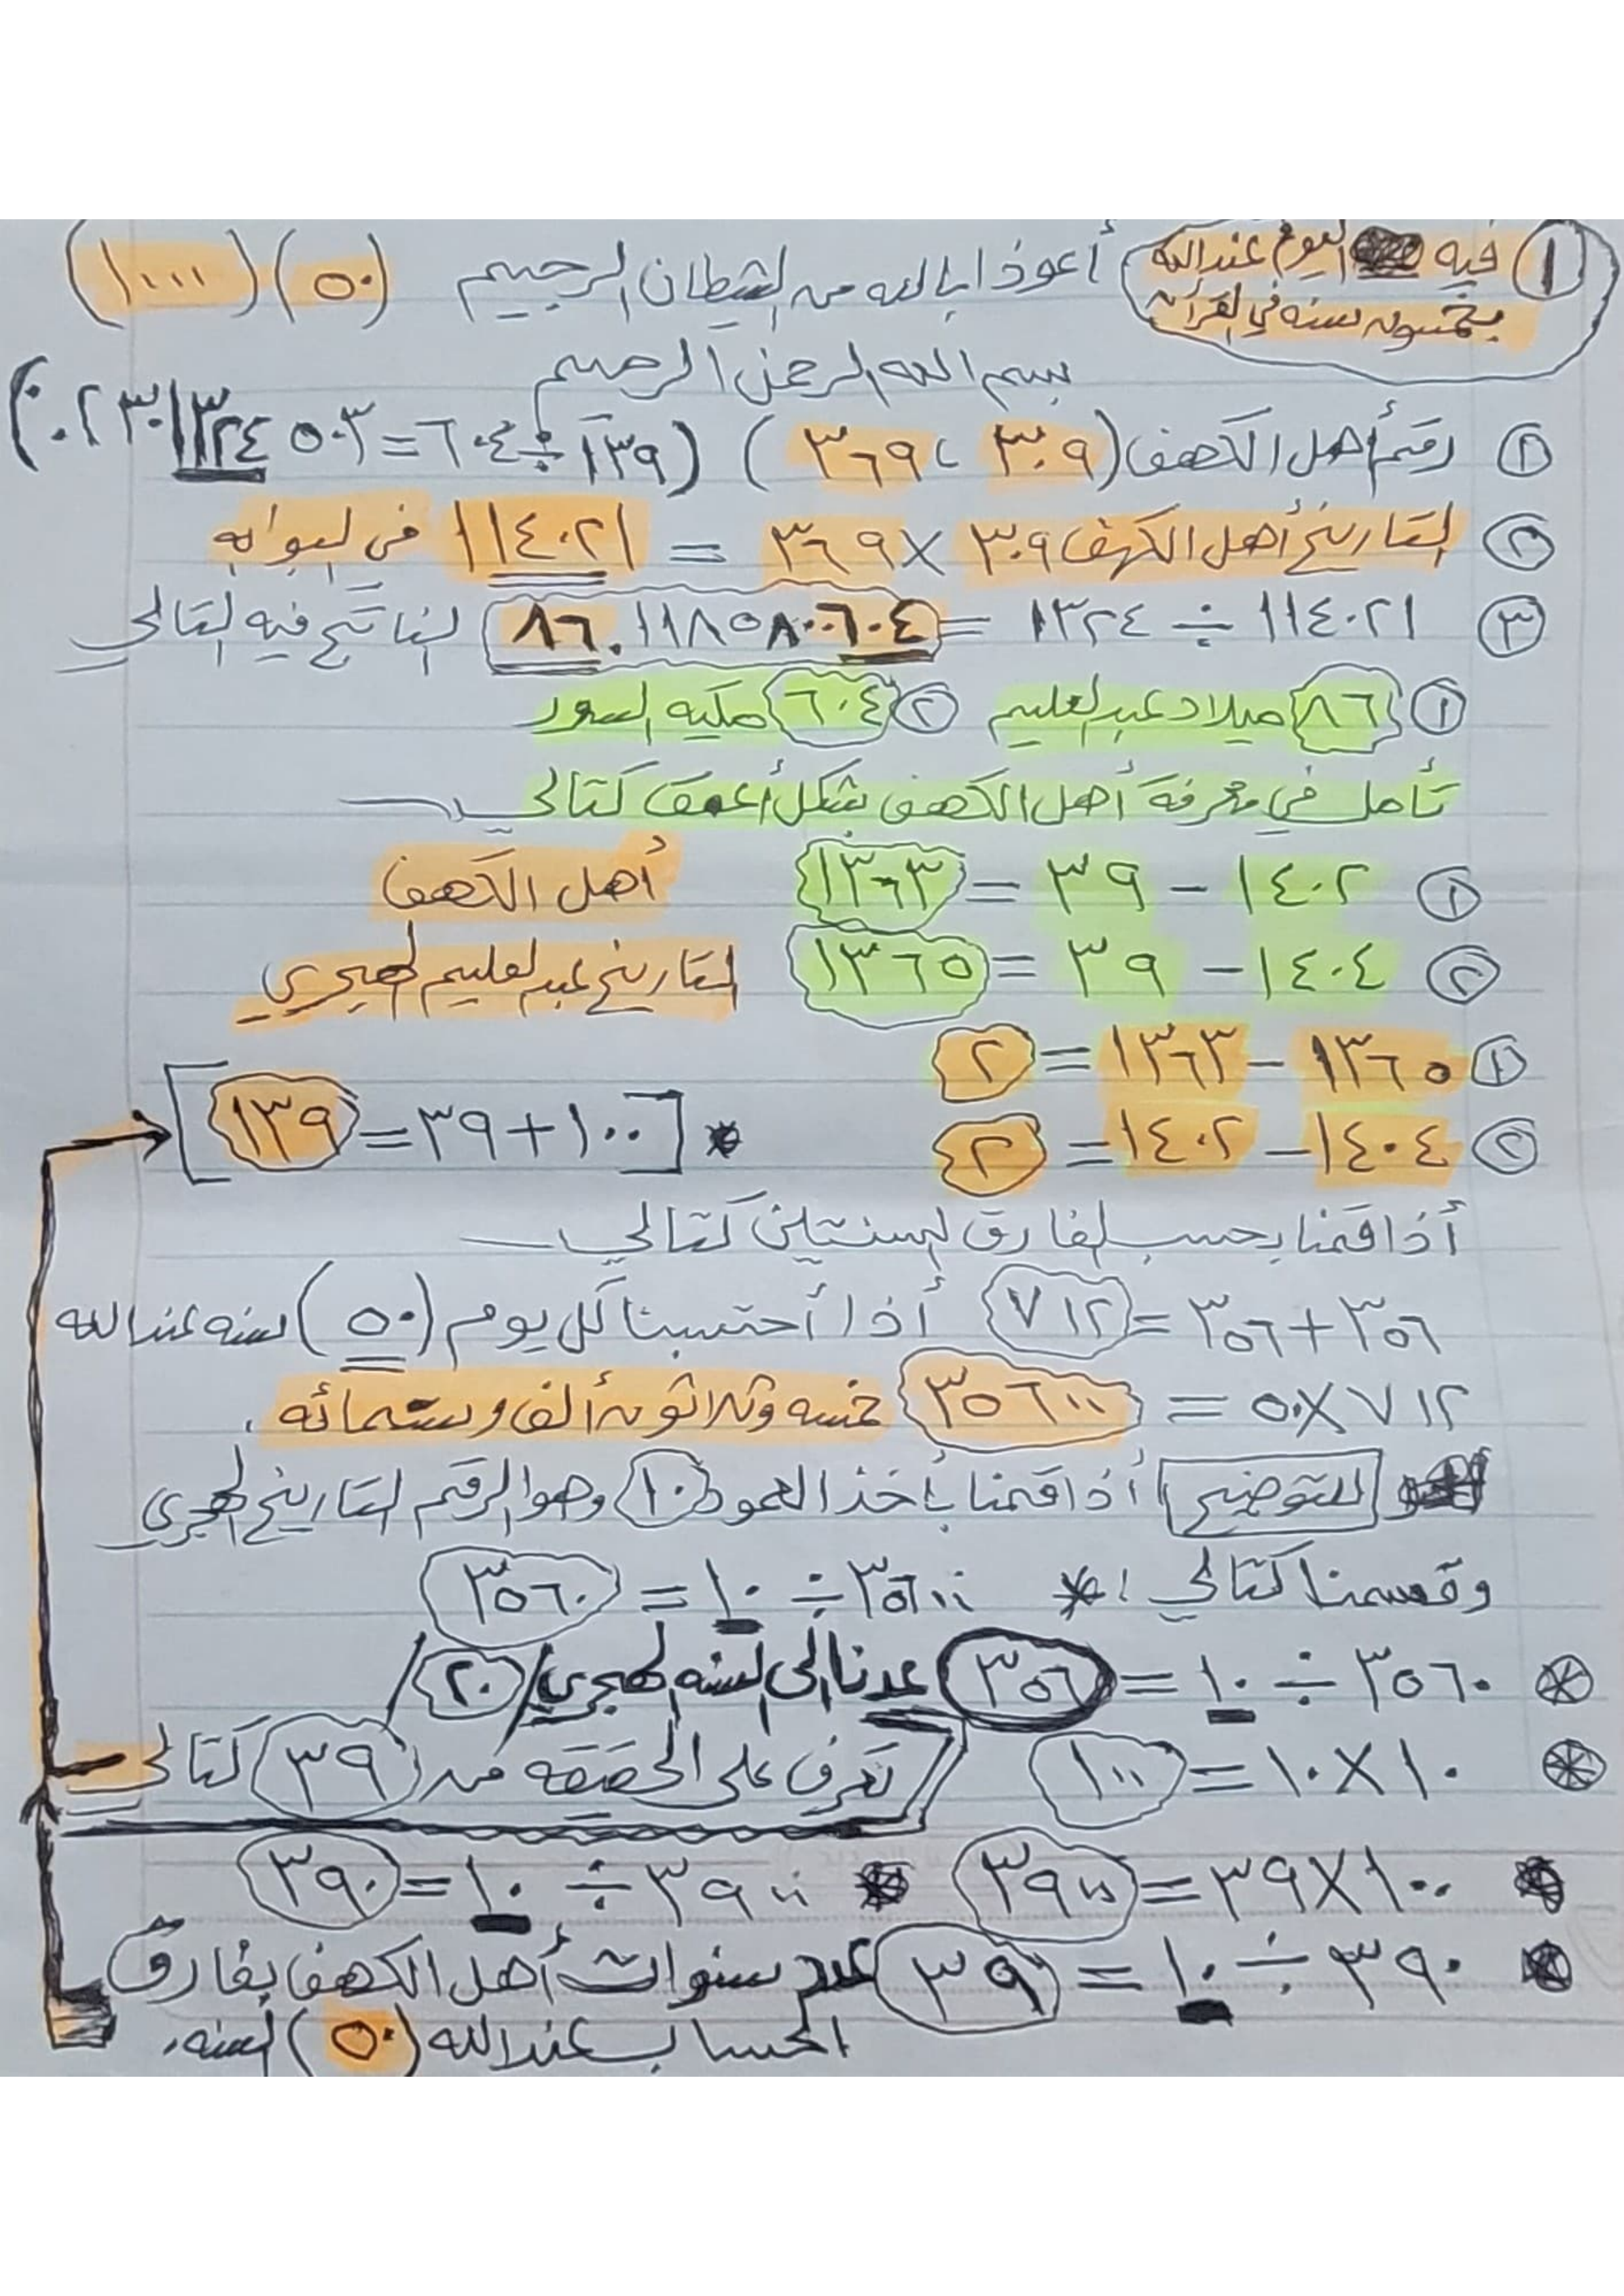 ١ فيه اليوم عند الله
بخمسون سنه في القرآن
أعوذ بالله من الشيطان الرجيم (٥٠) (١٠٠٠)
بسم الله الرحمن الرحيم
١ رقم أهل الكهف (٣٠٩ ، ٣٦٩) (١٣٩ ÷ ٦٠٤ =
٢ التاريخ أهل الكهف ٣٠٩ × ٣٦٩ = ١١٤٠٢١ في البوابه
٣ ١١٤٠٢١ ÷ ١٣٢٤ = ٨٦.١١٨٥٨٠٠٦٠٤ الناتج فيه التالي
١ ٨٦ ميلاد عبدالعليم ٢ ٦٠٤ مكيه السور
تأمل في معرفة أهل الكهف بشكل أعمق كتالي
١ ١٤٠٢ - ٣٩ = ١٣٦٣ أهل الكهف
٢ ١٤٠٤ - ٣٩ = ١٣٦٥ التاريخ عبدالعليم الهجري
١ ١٣٦٥ - ١٣٦٣ = ٢
٢ ١٤٠٤ - ١٤٠٢ = ٢ * [١٠٠ + ٣٩ = ١٣٩]
أذا قمنا بحسب الفارق السنتين كتالي
٣٥٦ + ٣٥٦ = ٧١٢ أذا أحتسبنا كل يوم (٥٠) سنه عند الله
٧١٢ × ٥٠ = ٣٥٦٠٠ خمسه وثلاثون ألف وستمائه .
للتوضيح أذا قمنا بأخذ العمود ١٠ وهو الرقم التاريخ الهجري
وقسمنا كتالي : * ٣٥٦٠٠ ÷ ١٠ = ٣٥٦٠
* ٣٥٦٠ ÷ ١٠ = ٣٥٦ عدنا الى السنه الهجري / ٢٠ /
* ١٠ × ١٠ = ١٠٠ تعرف على الحقيقه من ٣٩ كتالي
* ١٠٠ × ٣٩ = ٣٩٠٠ * ٣٩٠٠ ÷ ١٠ = ٣٩٠
* ٣٩٠ ÷ ١٠ = ٣٩ عدد سنوات أهل الكهف بفارق
الحساب عند الله (٥٠) السنه.